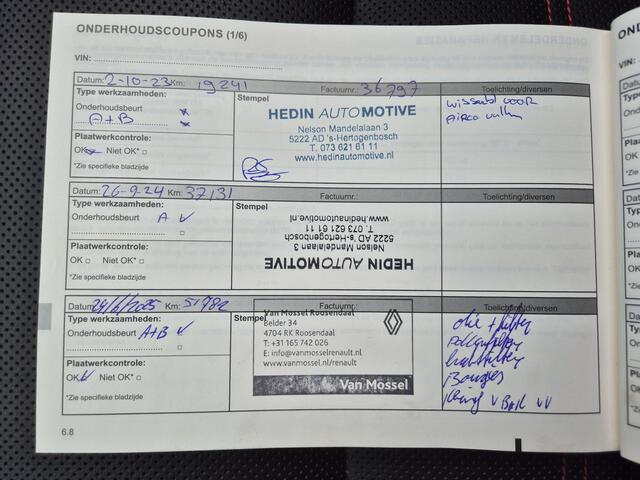 ONDERHOUDSCOUPONS (1/6)
VIN:
Datum: 2-10-23 Km: 19241 Factuurnr.: 36797 Toelichting/diversen
Type werkzaamheden:
Onderhoudsbeurt
A+B
Plaatwerkcontrole:
OK Niet OK* □
*Zie specifieke bladzijde
Stempel
HEDIN AUTOMOTIVE
Nelson Mandelalaan 3
5222 AD 's-Hertogenbosch
T. 073 621 61 11
www.hedinautomotive.nl
voor
Airco
Datum: 26-9-24 Km: 37131 Factuurnr.: Toelichting/diversen
Type werkzaamheden:
Onderhoudsbeurt A v
Plaatwerkcontrole:
OK □ Niet OK* □
*Zie specifieke bladzijde
Stempel
HEDIN AUTOMOTIVE
Nelson Mandelalaan 3
5222 AD 's-Hertogenbosch
T. 073 621 61 11
www.hedinautomotive.nl
Datum: 24/6/2025 Km: 51782 Factuurnr.: Toelichting/diversen
Type werkzaamheden:
Onderhoudsbeurt A+B v
Plaatwerkcontrole:
OK v Niet OK* □
*Zie specifieke bladzijde
Stempel
Van Mossel Roosendaal
Belder 34
4704 RK Roosendaal
T: +31 165 742 026
E: info@vanmosselrenault.nl
www.vanmossel.nl/renault
Van Mossel
olie + filter
Bougies
6.8